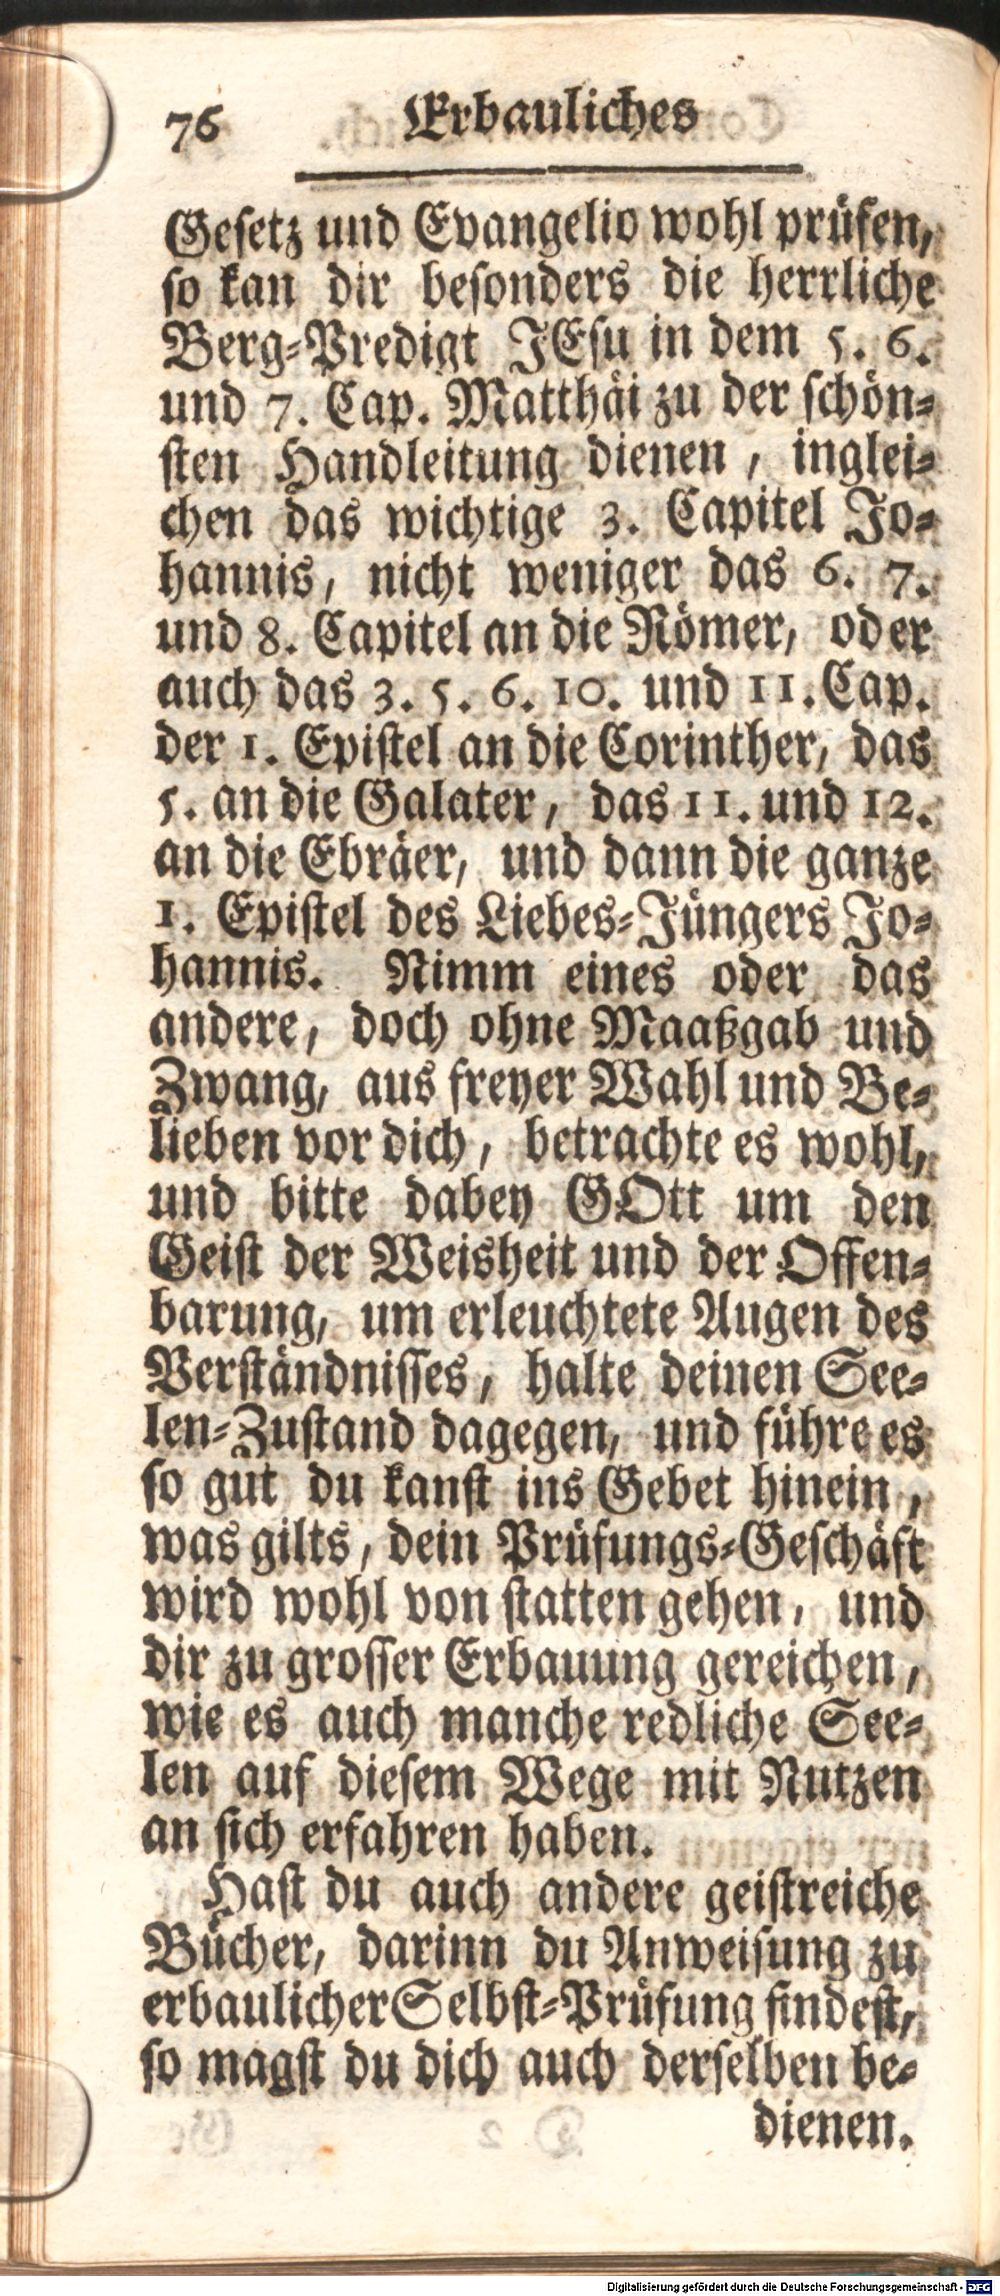 76 Erbauliches
Gesetz und Evangelio wohl prüfen,
so kan dir besonders die herrliche
Berg-Predigt JEsu in dem 5. 6.
und 7. Cap. Matthäi zu der schön-
sten Handleitung dienen, inglei-
chen das wichtige 3. Capitel Jo-
hannis, nicht weniger das 6. 7.
und 8. Capitel an die Römer, oder
auch das 3. 5. 6. 10. und 11. Cap.
der 1. Epistel an die Corinther, das
5. an die Galater, das 11. und 12.
an die Ebräer, und dann die ganze
1. Epistel des Liebes-Jüngers Jo-
hannis. Nimm eines oder das
andere, doch ohne Maaßgab und
Zwang, aus freyer Wahl und Be-
lieben vor dich, betrachte es wohl,
und bitte dabey GOtt um den
Geist der Weisheit und der Offen-
barung, um erleuchtete Augen des
Verständnisses, halte deinen See-
len-Zustand dagegen, und führe es
so gut du kanst ins Gebet hinein,
was gilts, dein Prüfungs-Geschäft
wird wohl von statten gehen, und
dir zu grosser Erbauung gereichen,
wie es auch manche redliche See-
len auf diesem Wege mit Nutzen
an sich erfahren haben.
Hast du auch andere geistreiche
Bücher, darinn du Anweisung zu
erbaulicher Selbst-Prüfung findest,
so magst du dich auch derselben be-
dienen.
Digitalisierung gefördert durch die Deutsche Forschungsgemeinschaft - DFG